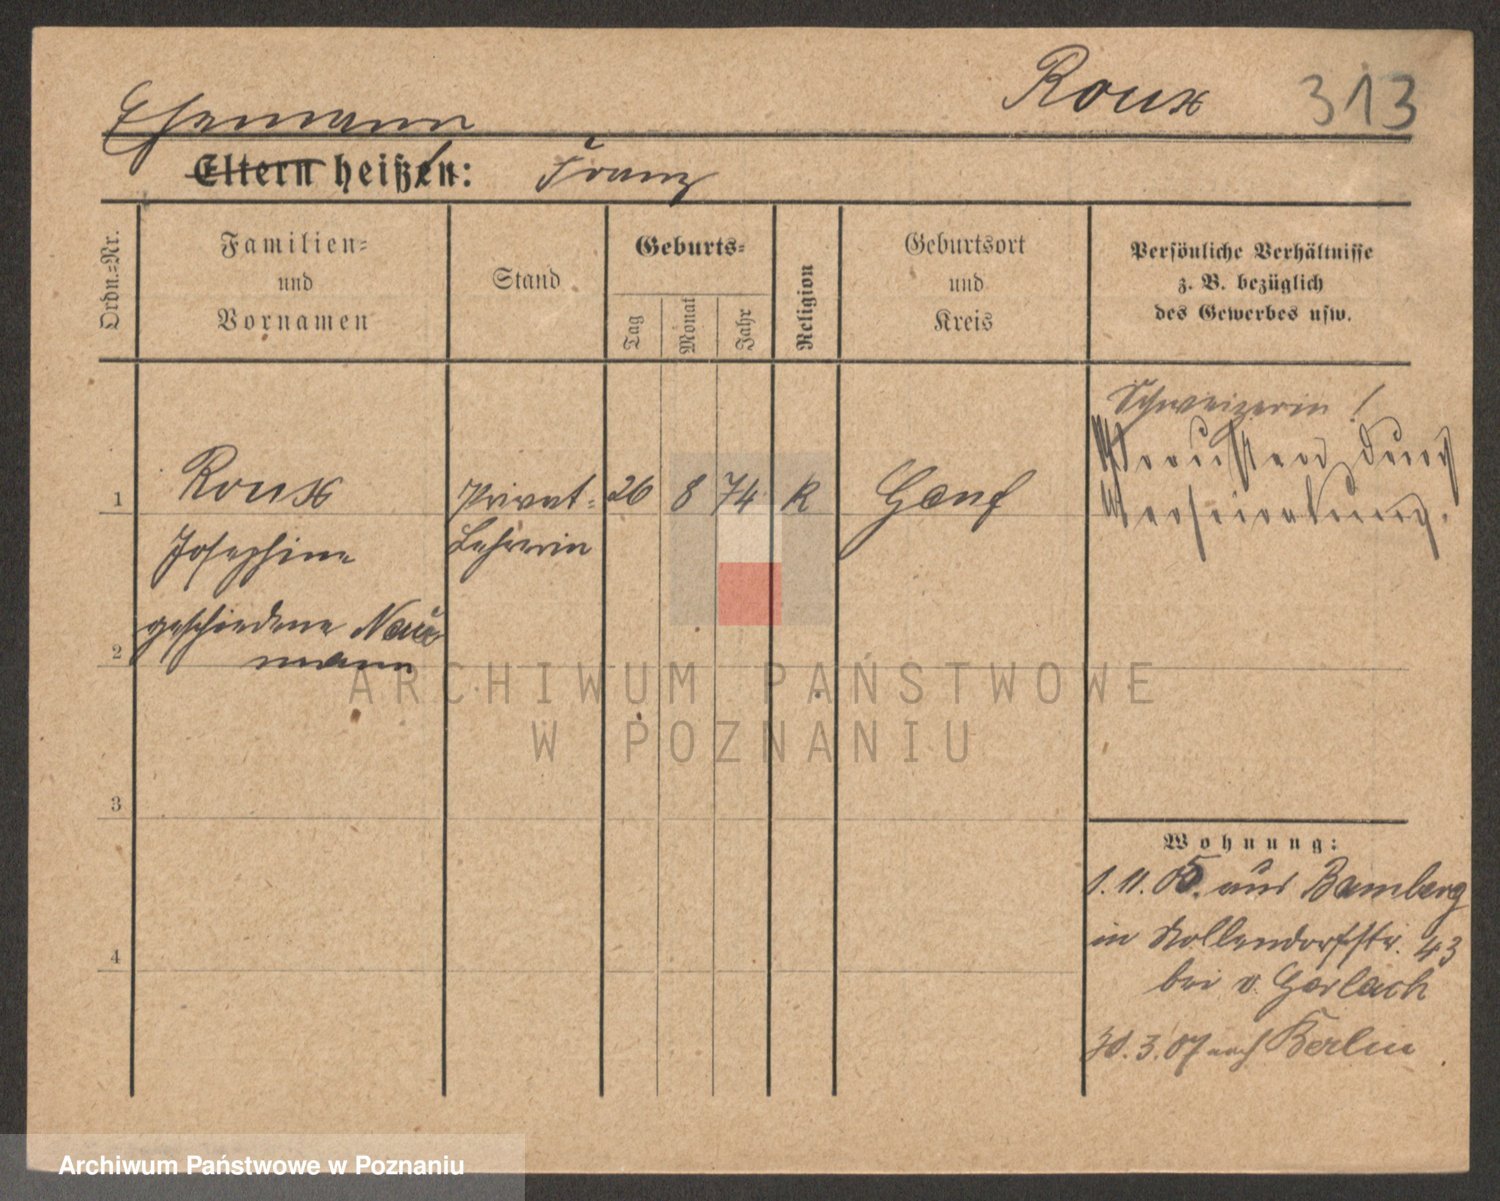 Roux 313
Ehemann
Eltern heißen: Franz
Ordn.=Nr.
Familien=
und
Vornamen
Stand
Geburts=
Tag
Monat
Jahr
Religion
Geburtsort
und
Kreis
Persönliche Verhältnisse
z. B. bezüglich
des Gewerbes usw.
Schweizerin!
Preussen durch
Verheiratung.
1 Roux Privat= 26 8 74 K Genf
Josephine Lehrerin
geschiedene Nau
2 mann
3
4
Wohnung:
1. 11. 05. aus Bamberg
in Kollendorfstr. 43
bei v. Gerlach
30. 3. 07 nach Berlin
ARCHIWUM PAŃSTWOWE
W POZNANIU
Archiwum Państwowe w Poznaniu